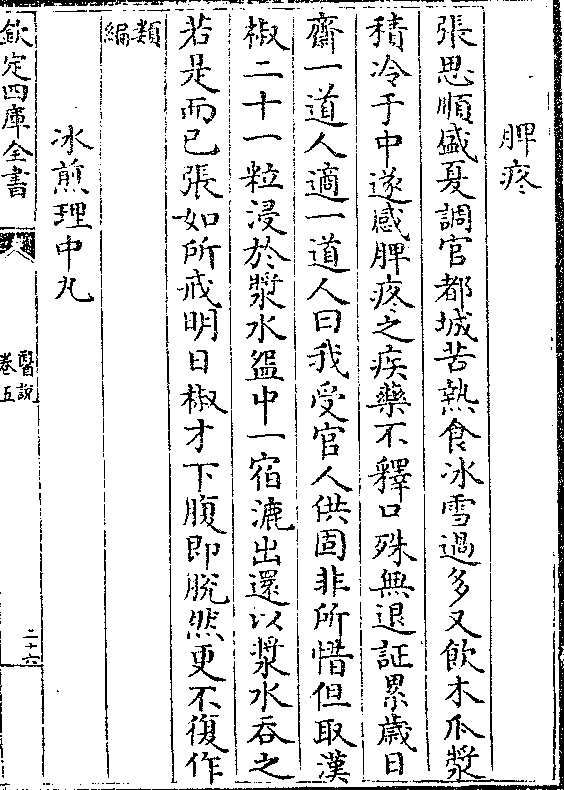 脾疼
張思順盛夏調官都城苦熱食冰雪過多又飲木瓜漿
積冷于中遂感脾疼之疾藥不釋口殊無退証累歲日
齋一道人適一道人曰我受官人供固非所惜但取漢
椒二十一粒浸於漿水盌中一宿漉出還以漿水吞之
若是而已張如所戒明日椒才下腹即脫然更不復作
類編
冰煎理中丸
欽定四庫全書
醫說
卷五
二十六